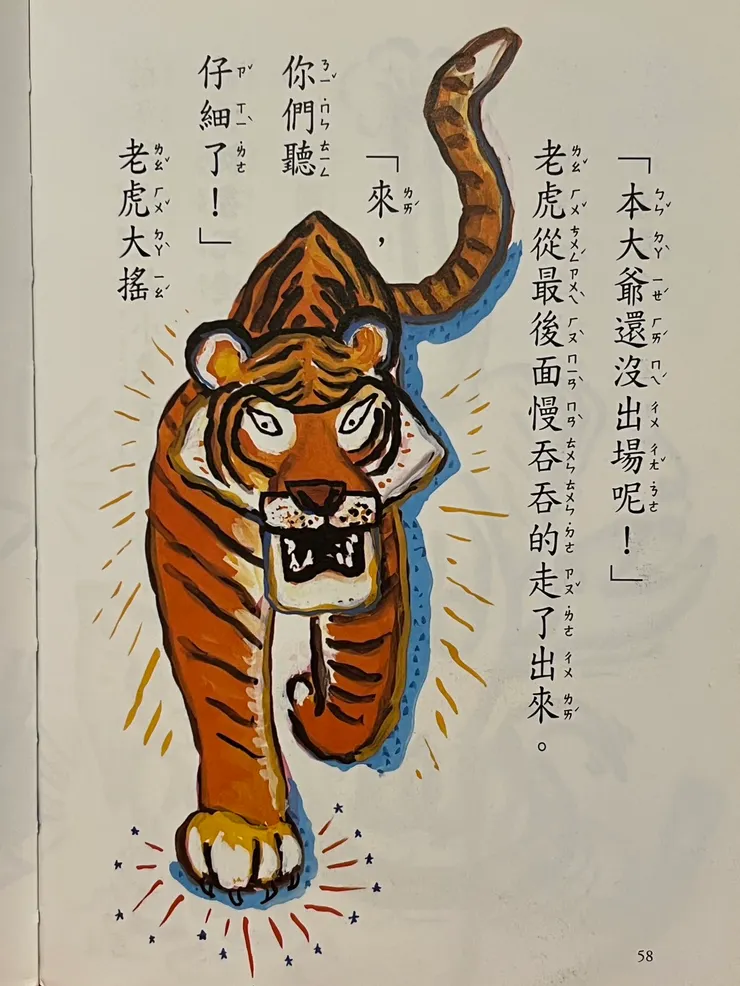 「本大爺還沒出場呢！」
老虎從最後面慢吞吞的走了出來。
「來，
你們聽
仔細了！」
老虎大搖
58